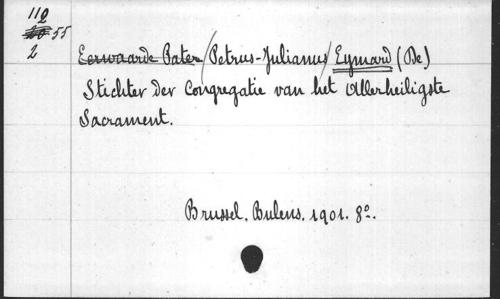 112
55
2
Eerwaarde Pater / Petrus-Julianus / Eymard (De)
Stichter der Congregatie van het Allerheiligste
Sacrament.
Brussel. Bulens. 1901. 8º.